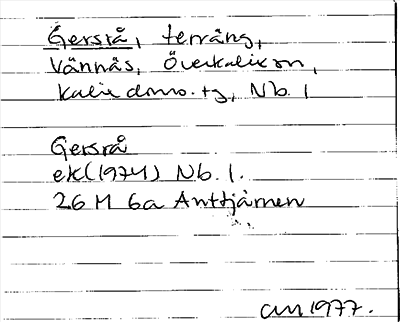 Gersrå, terräng,
Vännäs, Överkalix sn,
Kalix doms.tg, Nb. l
Gersrå
ek(1974) Nb. l.
26 M 6a Anttjärnen
am 1977.